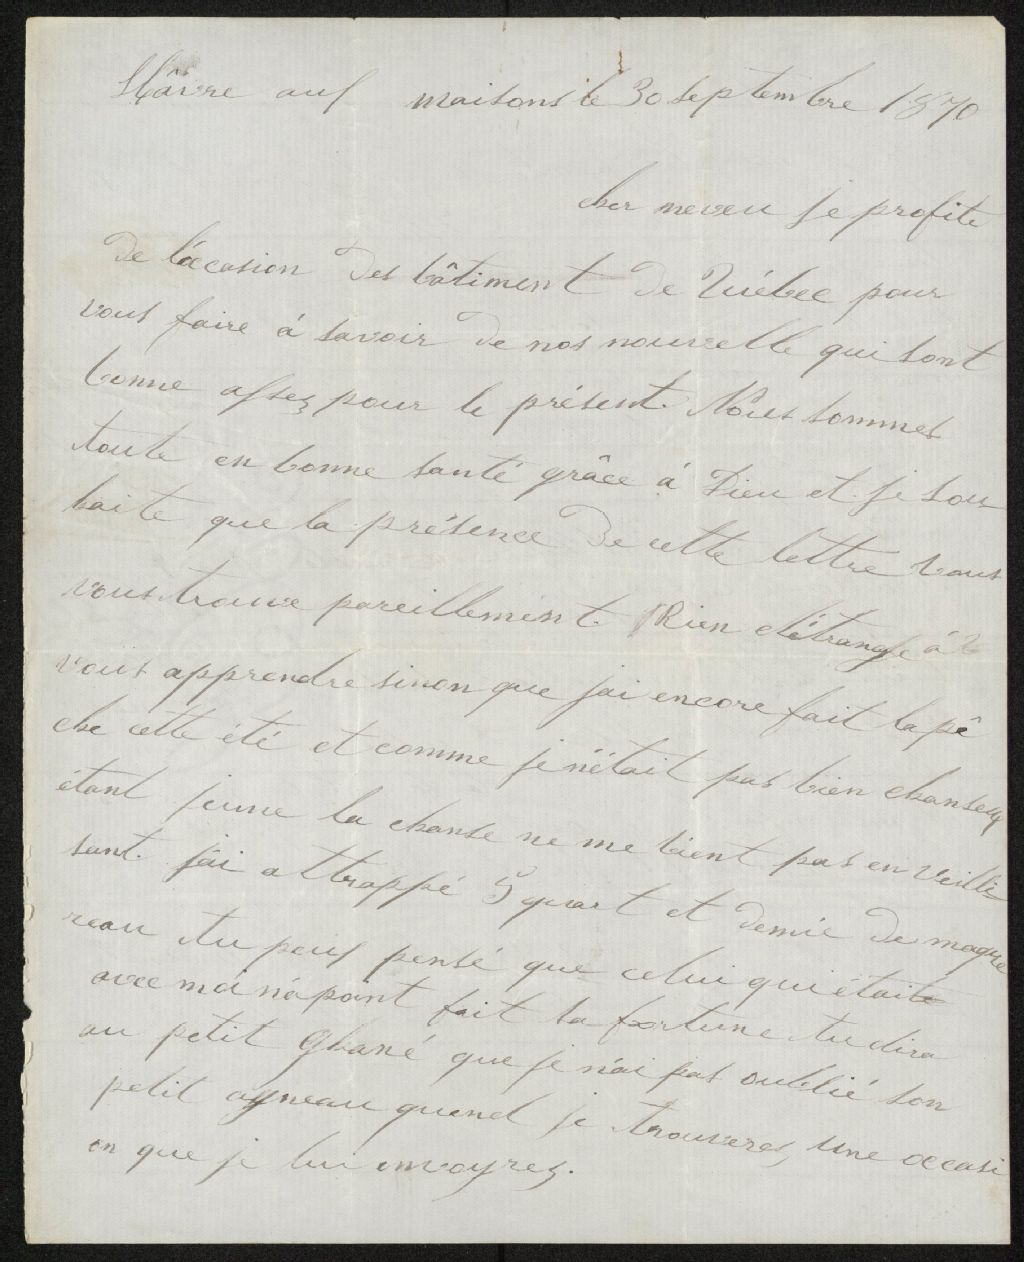 Hâvre auf maisons le 30 septembre 1870
cher neveu je profite
De l'occasion Des bâtiment De Québec pour
vous faire à savoir De nos nouvelle qui sont
bonne assez pour le présent. Nous sommes
toute en bonne santé grâce à Dieu et je sou
haite que la présence De cette lettre vous
vous trouve pareillement. Rien d'étrange à
vous apprendre sinon que j'ai encore fait la pê
che cette été et comme je n'était pas bien chanseux
étant jeune la chanse ne me vient pas en veillis
sant. j'ai attrappé 5 quart et Demie De maque
reau tu peux pensé que celui qui était
avec moi n'a point fait sa fortune tu dira
au petit que je n'ai pas oublié son
petit agneau quend je trouveres une occasi
on que je lui envoyrez.